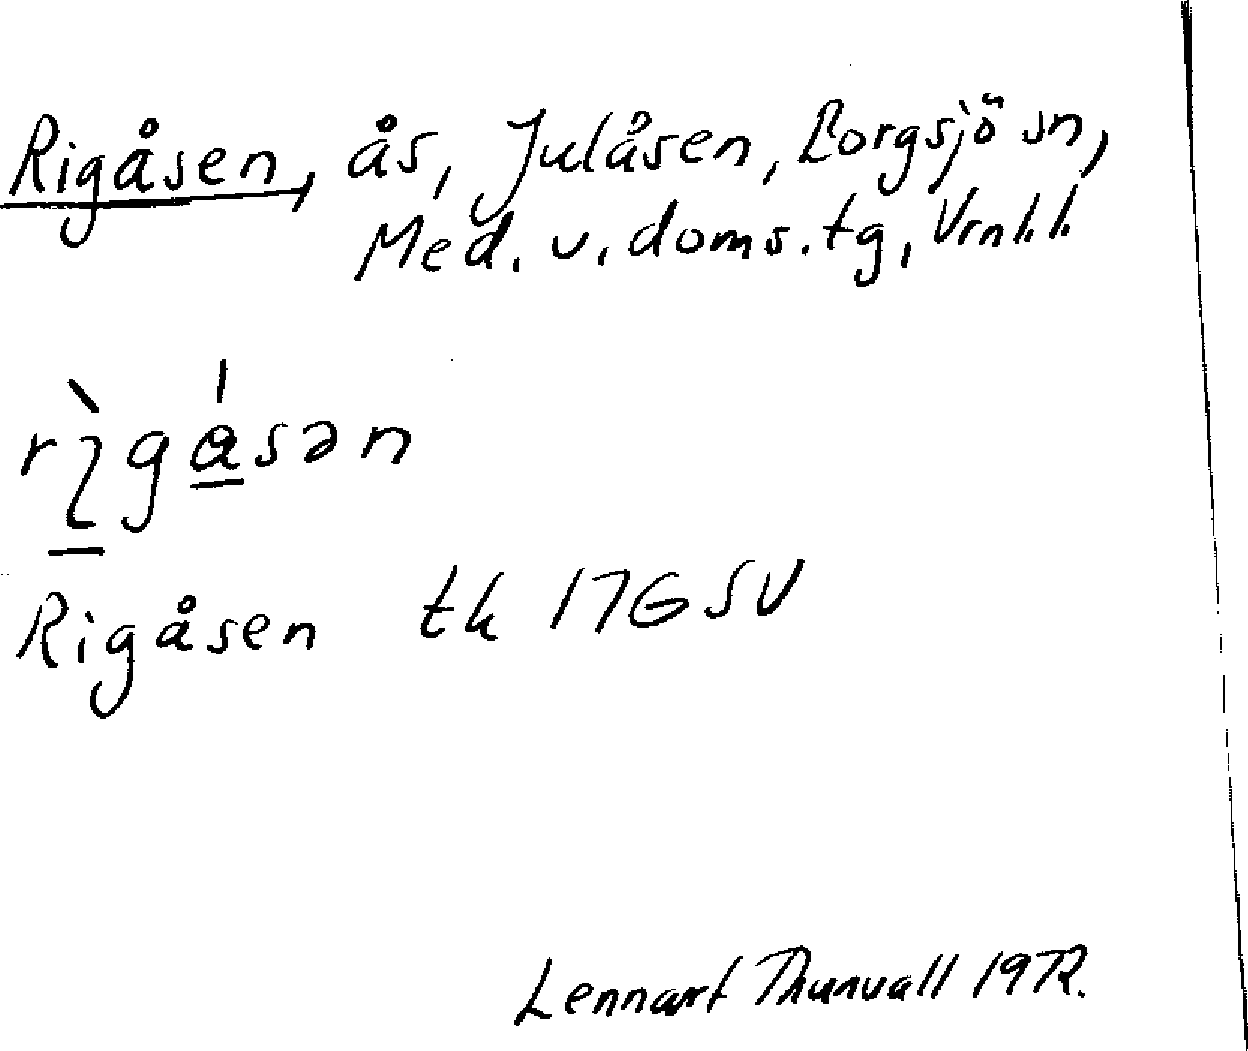 Rigåsen, ås, Julåsen, Borgsjö sn,
Med. v. doms. tg, Vrnl.l.
Rigåsen tk 17G SV
Lennart Thunvall 1972.